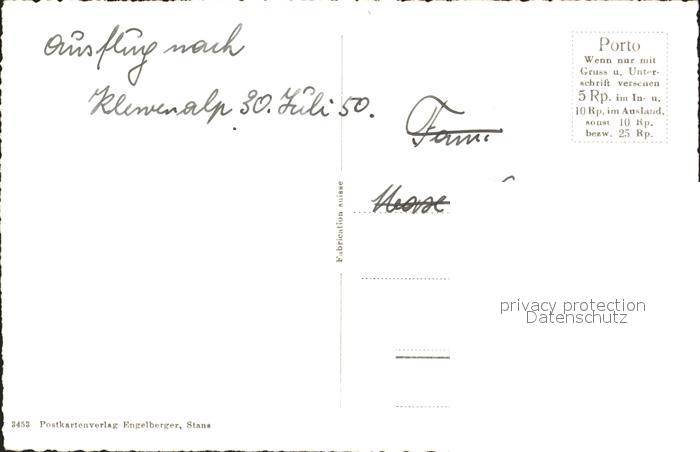 Ausflug nach
Klewenalp 30. Juli 50.
Fam.
Porto
Wenn nur mit
Gruss u. Unter-
schrift versehen
5 Rp. im In- u.
10 Rp. im Ausland,
sonst 10 Rp.
bezw. 25 Rp.
Fabrication suisse
privacy protection
Datenschutz
3453 Postkartenverlag Engelberger, Stans